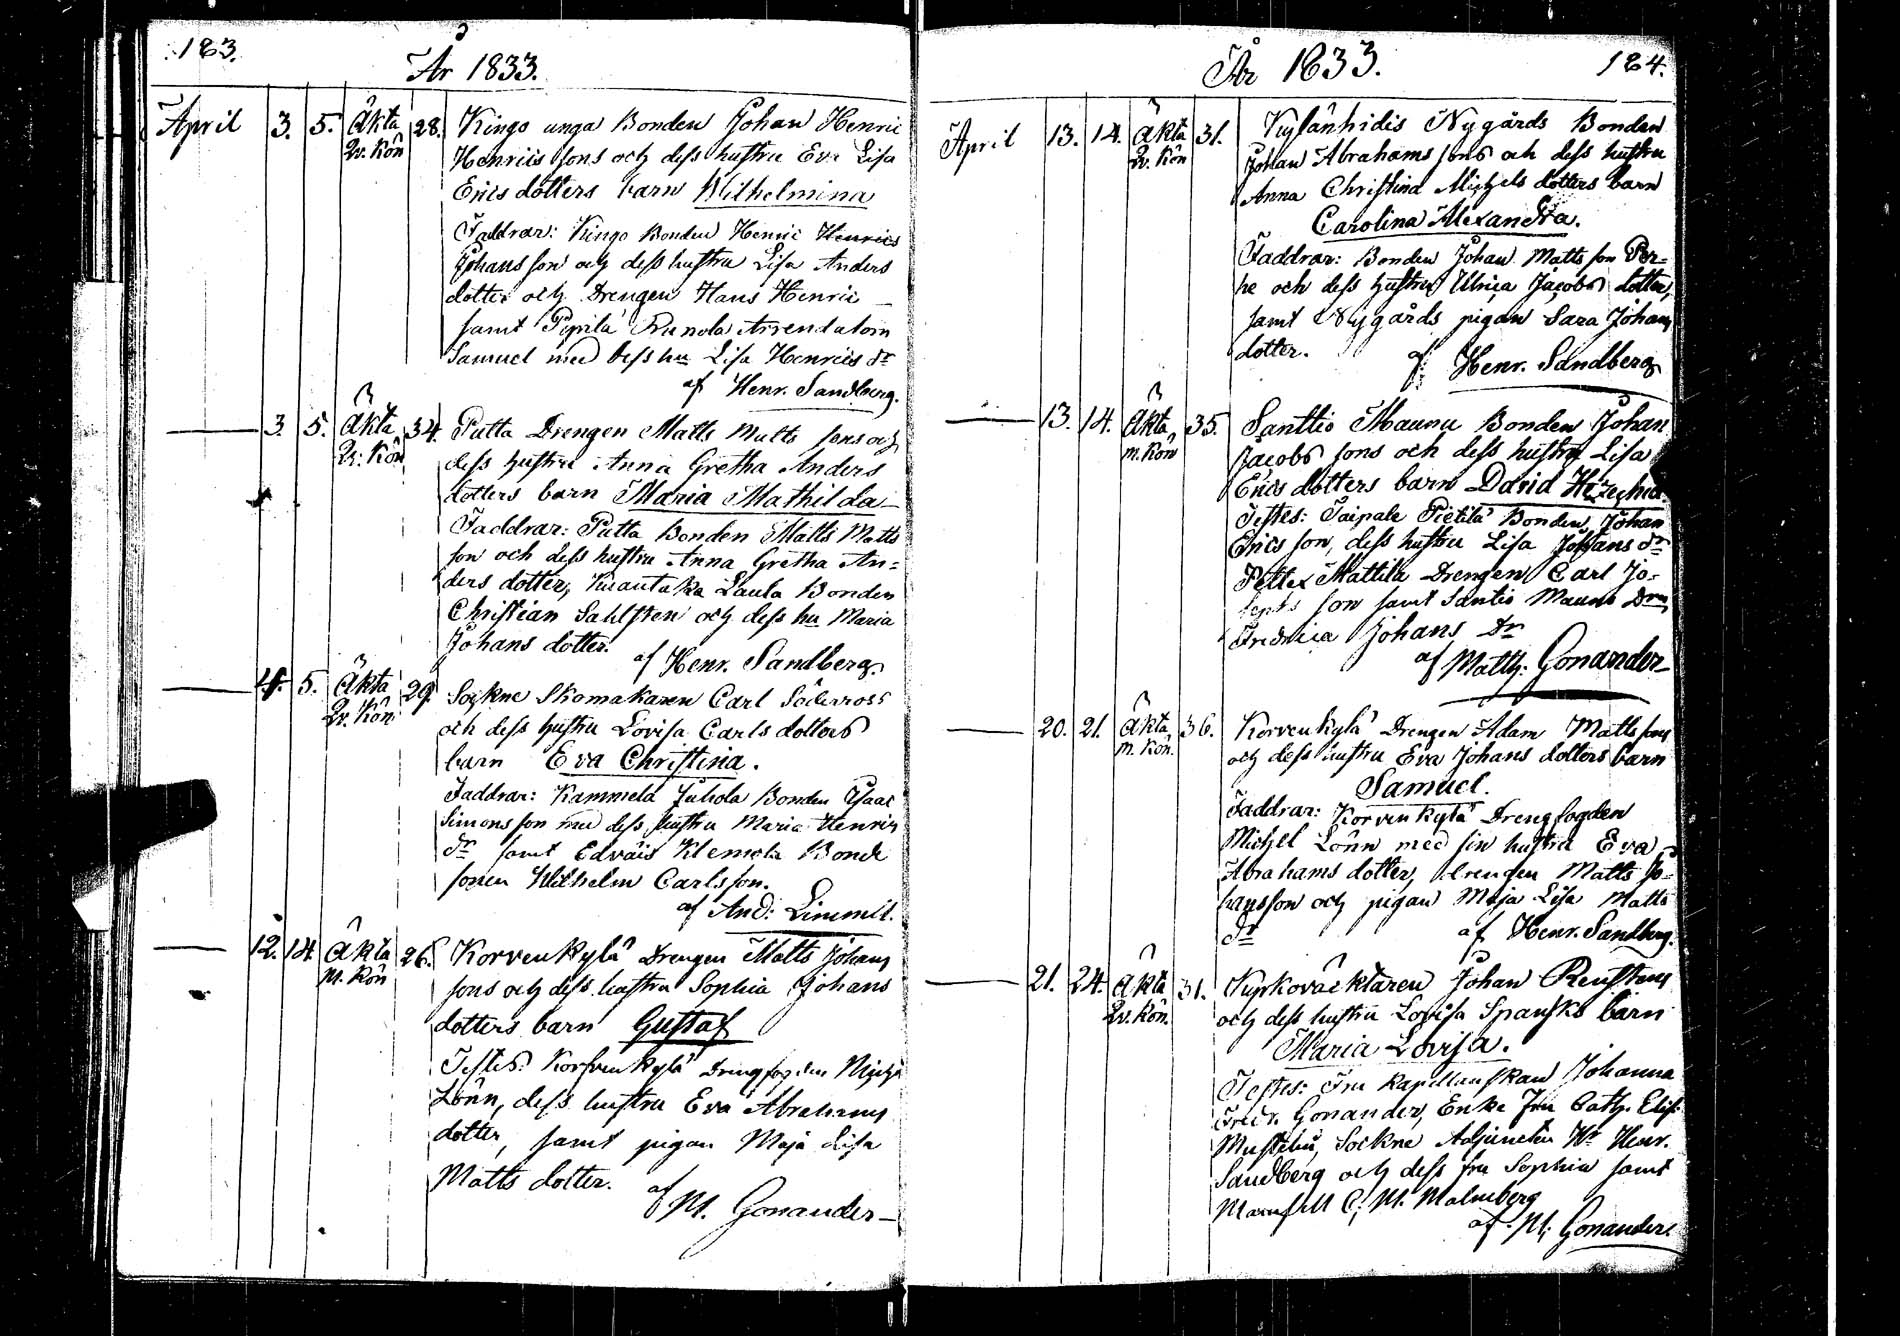 183.
År 1833.
April 3. 5. Äkta 28. Kingo unga Bonden Johan Henric
Qv. Kön Henrics sons och dess hustru Eva Lisa
Erics dotters barn Wilhelmina
Faddrar: Kingo Bonden Henric Henrics
Johans son och dess hustru Lisa Anders
dotter och Drengen Hans Henric
samt Prunola Arrendatorn
Samuel med dess hu Lisa Henrics dr
af Henr. Sandberg.
3. 5. Äkta 34. Putta Drengen Matts Matts sons och
Qv. Kön dess hustru Anna Gretha Anders
dotters barn Maria Mathilda
Faddrar: Putta Bonden Matts Matts
son och dess hustru Anna Gretha An=
ders dotter, Laula Bonden
Christian Sahlsten och dess hu Maria
Johans dotter.
af Henr. Sandberg.
4. 5. Äkta 29. Sockne Skomakaren Carl Söderross
Qv. Kön och dess hustru Lovisa Carls dotters
barn Eva Christina.
Faddrar: Kammela Juhola Bonden Isaac
Simons son med dess hustru Maria Henrics
dr samt Edväis Klemola Bonde
sonen Wilhelm Carlsson.
af And: Limmel.
12. 14. Äkta 26. Korvenkylä Drengen Matts Johans
M. Kön sons och dess hustru Sophia Johans
dotters barn Gustaf
Testes: Korfvenkylä Drengfogden Michel
Lönn, dess hustru Eva Abrahams
dotter, samt pigan Maja Lisa
Matts dotter.
af M. Gonander
År 1833.
184.
April 13. 14. Äkta 31. Kylänhidis Nygårds Bonden
Qv. Kön Johan Abrahams sons och dess hustru
Anna Christina Michels dotters barn
Carolina Alexandra.
Faddrar: Bonden Johan Matts son Per=
he och dess hustru Ulrica Jacobs dotter,
samt Nygårds pigan Sara Johans
dotter.
af Henr. Sandberg
13. 14. Äkta 35. Santtio Maunu Bonden Johan
m. Kön Jacobs sons och dess hustru Lisa
Erics dotters barn David
Testes: Taipale Pietilä Bonden Johan
Erics son, dess hustru Lisa Johans dr
Mattila Drengen Carl Jo=
sephs son samt Santio Maunu
Fredrica Johans Dr
af Matth. Gonander
20. 21. Äkta 36. Korvenkylä Drengen Adam Matts sons
m. Kön. och dess hustru Eva Johans dotters barn
Samuel.
Faddrar: Korvenkylä Drengfogden
Michel Lönn med sin hustru Eva
Abrahams dotter, drengen Matts Jo=
hansson och pigan Maja Lisa Matts
dr
af Henr. Sandberg.
21. 24. Äkta 31. Kyrkoväcktaren Johan
Qv. Kön. och dess hustru Lovisa Spansks barn
Maria Lovisa.
Testes: Fru Kapellanskan Johanna
Fredr. Gonander, Enke Fru Cath. Elis.
Sockne Adjuncten Hr Henr.
Sandberg och dess fru Sophia samt
Mamsell C. M. Malmberg
af M. Gonander.